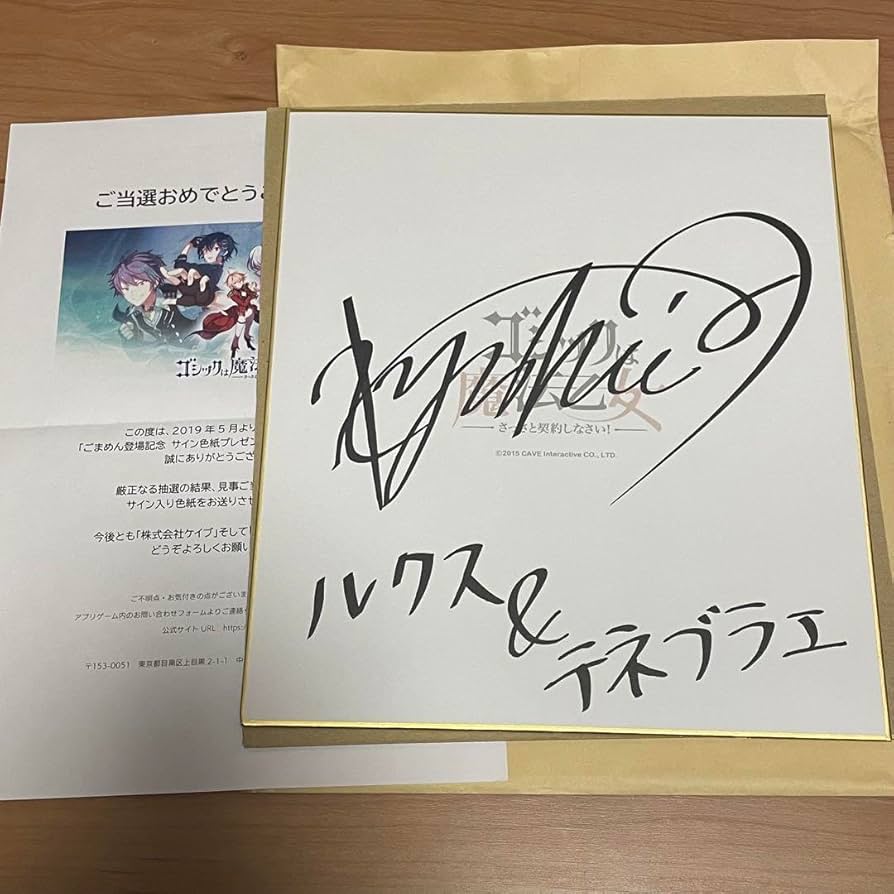 ご当選おめでとうご
ゴシックは魔法
この度は、2019年5月より
「ごまめん登場記念 サイン色紙プレゼン
誠にありがとうござ
厳正なる抽選の結果、見事ご当
サイン入り色紙をお送りさせ
今後とも「株式会社ケイブ」そして「
どうぞよろしくお願い
ご不明点・お気付きの点がございま
アプリゲーム内のお問い合わせフォームよりご連絡
公式サイト URL: https:
〒153-0051 東京都目黒区上目黒2-1-1 中
ゴシックは
魔法乙女
さっさと契約しなさい!
©2015 CAVE Interactive CO., LTD.
ルクス
&
テネブラエ